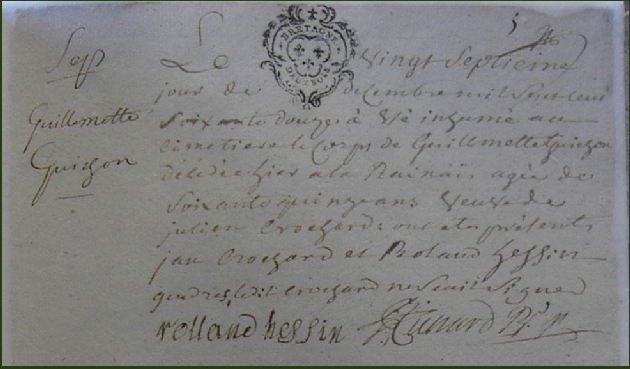 Sep
Guillemette
Guichon
BRETAGNE
Le Vingt Septieme
jour de decembre mil Sept cent
Soixante douze à Eté inhumé au
cimetiere le Corps de Guillemette Guichon
décédée hier a la Rainais agée de
Soixante quinze ans Veuve de
julien Crochard: ont etes présents
jan Crochard et Roland hessin
gendres ledit Crochard ne scait Signer
rolland hessin